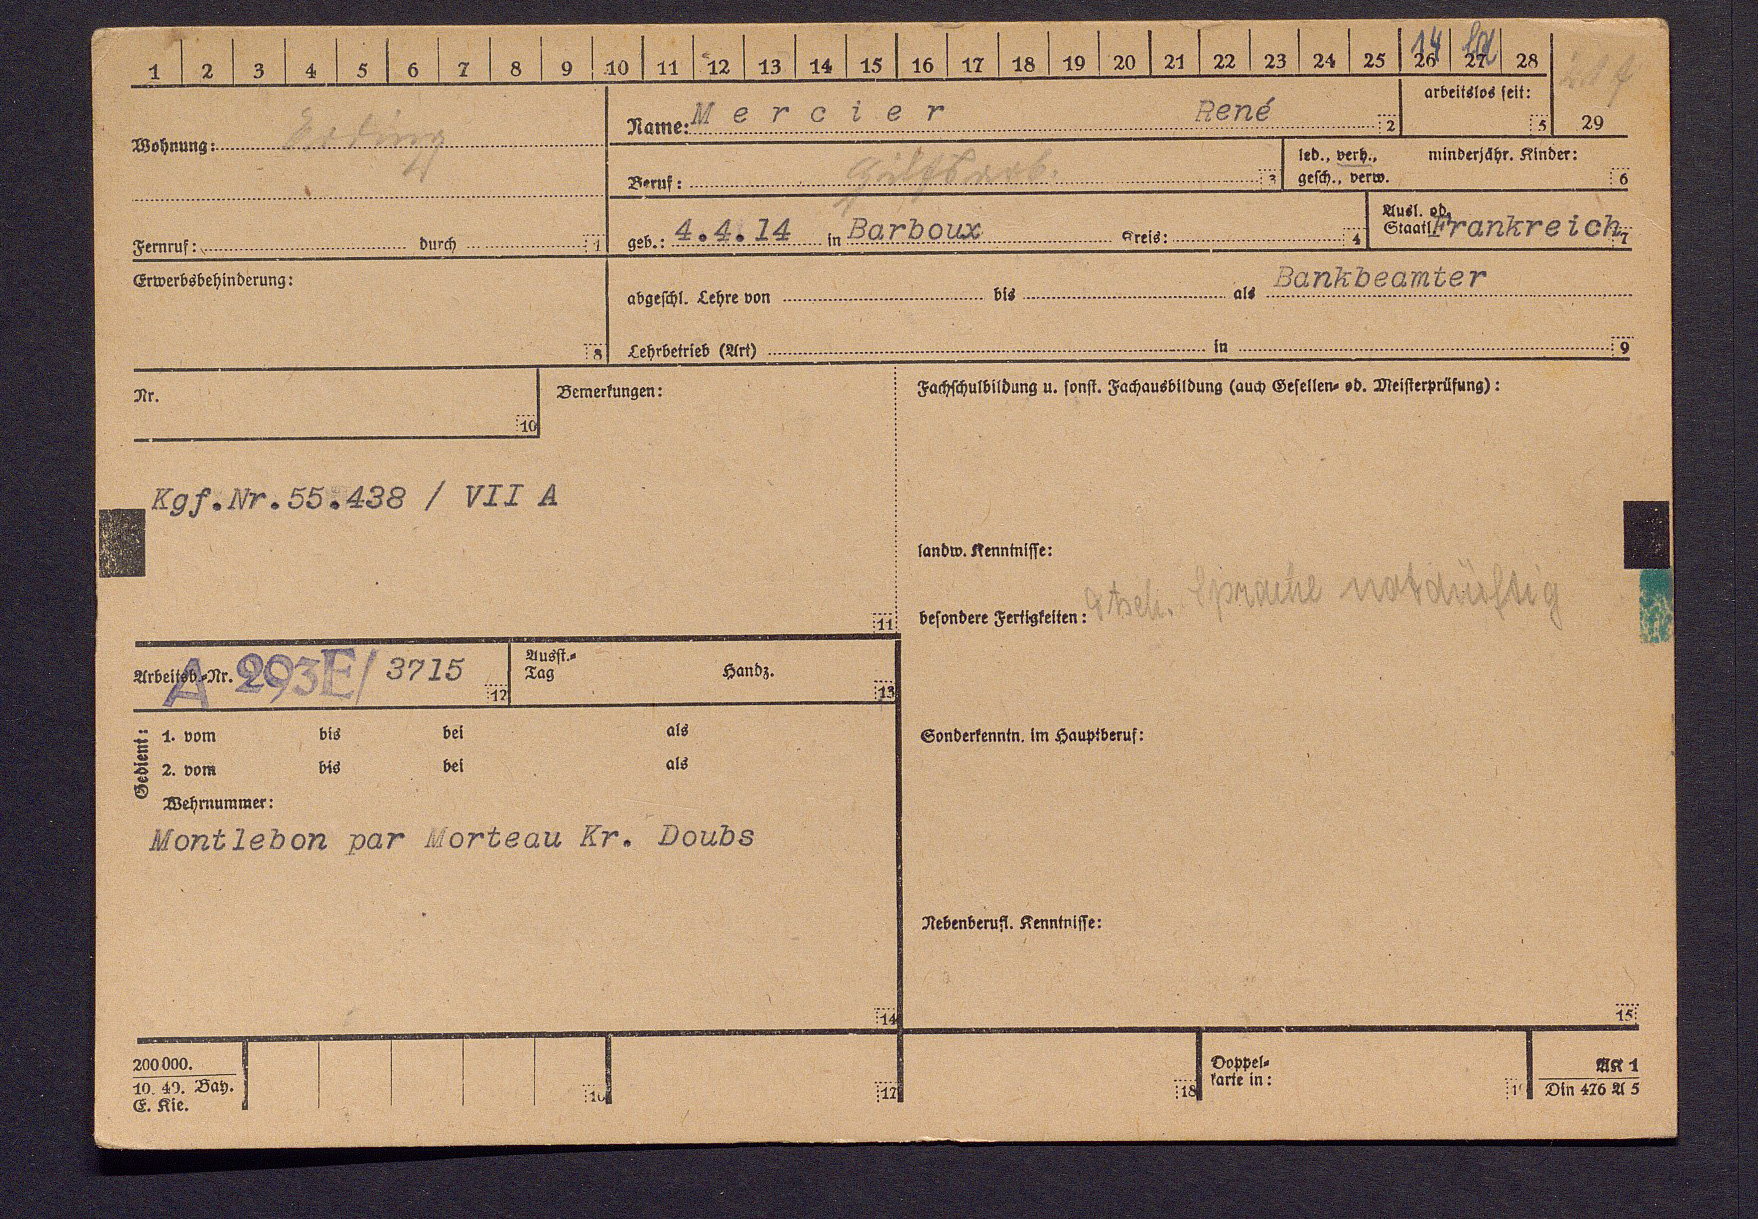 1 2 3 4 5 6 7 8 9 10 11 12 13 14 15 16 17 18 19 20 21 22 23 24 25 26 27 28
14
arbeitslos seit:
5
29
Wohnung: Erding
Name: Mercier René 2
Beruf: Hilfsarb. 3
led., verh., minderjähr. Kinder:
gesch., verw. 6
Fernruf: durch 1
geb.: 4.4.14 in Barboux Kreis: 4
Ausl. od.
Staatl. Frankreich 7
Erwerbsbehinderung:
8
abgeschl. Lehre von bis als Bankbeamter
Lehrbetrieb (Art) in 9
Nr.
10
Bemerkungen:
Kgf.Nr.55.438 / VII A
11
Fachschulbildung u. sonst. Fachausbildung (auch Gesellen- od. Meisterprüfung):
landw. Kenntnisse:
besondere Fertigkeiten: dtsch. Sprache notdürftig
Arbeitsb.-Nr. A 293E/ 3715 12
Ausst.-
Tag Handz. 13
Gedient:
1. vom bis bei als
2. vom bis bei als
Wehrnummer:
Montlebon par Morteau Kr. Doubs
14
Sonderkenntn. im Hauptberuf:
Nebenberufl. Kenntnisse:
15
200000.
10. 40. Bay.
E. Kie.
16
17
18
Doppel-
karte in:
19
AK 1
Din 476 A 5